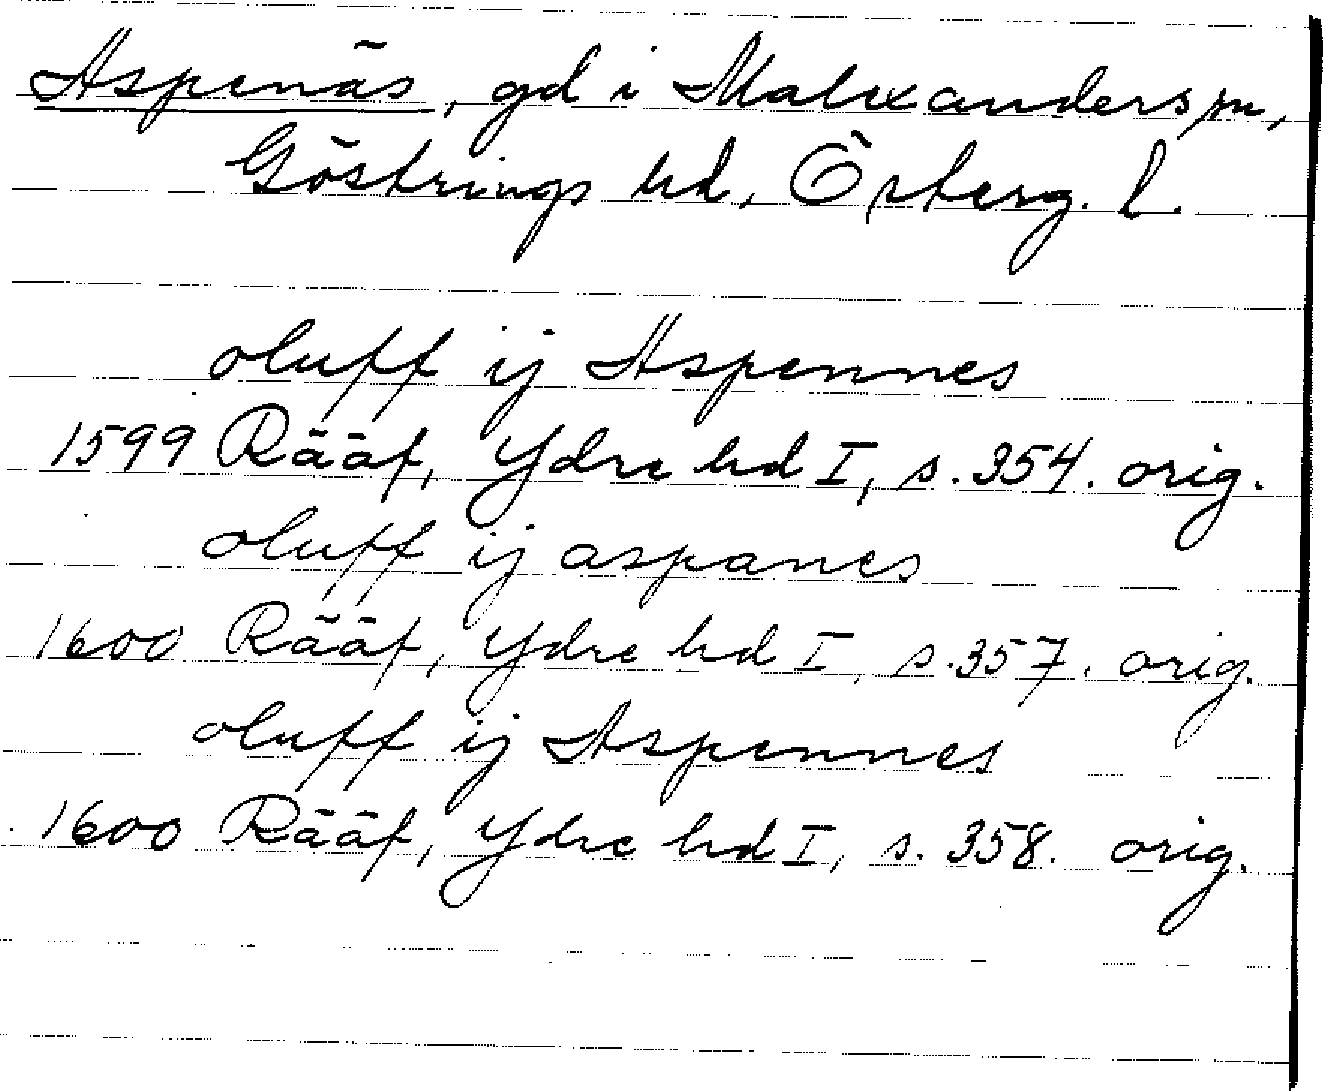 Aspenäs, gd i Malexanders sn,
Göstrings hd, Österg. l.
oluff ij Aspennes
1599 Rääf, Ydre hd I, s. 354. orig.
oluff ij aspanes
1600 Rääf, Ydre hd I, s. 357. orig.
oluff ij Aspennes
1600 Rääf, Ydre hd I, s. 358. orig.